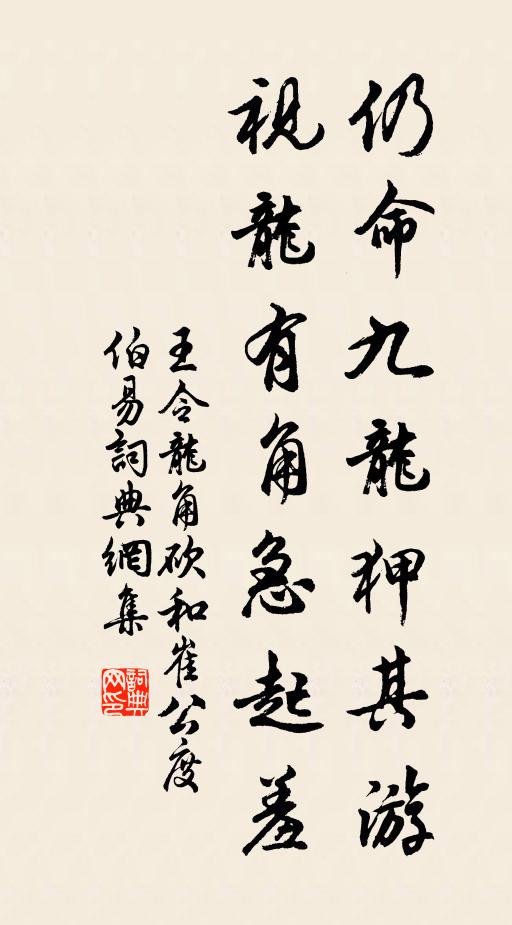 仍命九龍狎其游
視龍有角急起羞
王令龍角砍和崔公度
伯易詞典網集
詞典网印